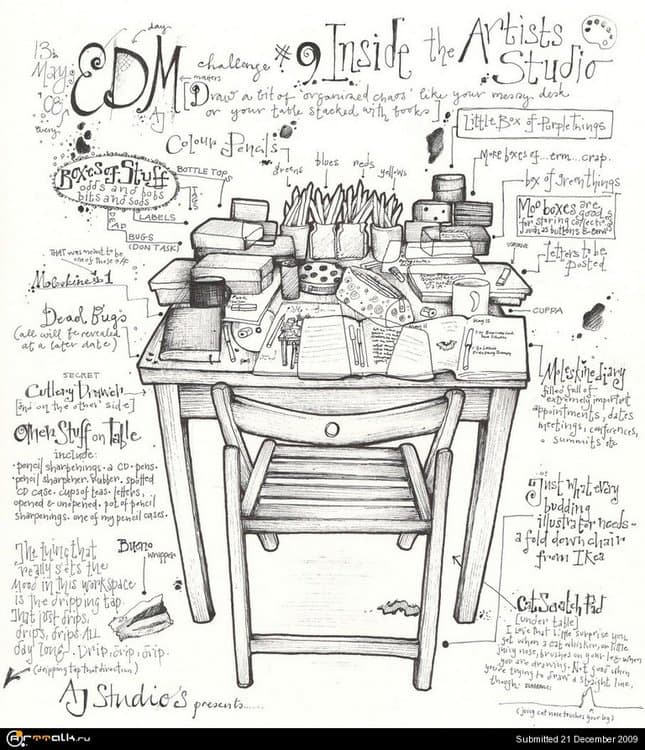 13th
May
08
day
every
EDM
challenge #9 Inside the Artists
Studio
makers
AJ
[Draw a bit of 'organized chaos' like your messy desk
or your table stacked with books]
Colour Pencils
greens
blues
reds
yellows
Little Box of Purple Things
More boxes of...erm...crap.
box of green things
Moo boxes are
good
for storing collections
such as buttons & beads
Letters to be
posted
CUPPA
Boxes of Stuff
odds and bobs
bits and sods
BOTTLE TOPS
LABELS
DEAD
BUGS
(DON'T ASK)
THAT was meant to be
one of those
Moleskine #1
Dead Bugs
(all will be revealed
at a later date)
SECRET
Cutlery Drawer
[and on the other side]
Other Stuff on Table
include:
·pencil sharpenings·a CD·pens·
·pencil sharpener·rubber·spotted
CD case·cups of teas·letters,
opened & unopened·pot of pencil
sharpenings·one of my pencil cases.
The thing that
really sets the
mood in this workspace
is the dripping tap.
That just drips,
drips, drips. All
day long. Drip, drip, drip.
(dripping tap that direction)
Bueno
wrapper
Moleskine diary
filled full of
extremely important
appointments, dates
meetings, conferences,
summits etc
Just what every
budding
illustrator needs-
a fold down chair
from IKea
Cat Scratch Pad
[under table]
I love that little surprise you
get when a cat whisker, or little
juicy nose, brushes on your leg when
you are drawing. Not good when
you're trying to draw a straight line,
though.
(juicy cat nose touches your leg)
AJ Studio's presents......
ARTTalk.ru
Submitted 21 December 2009